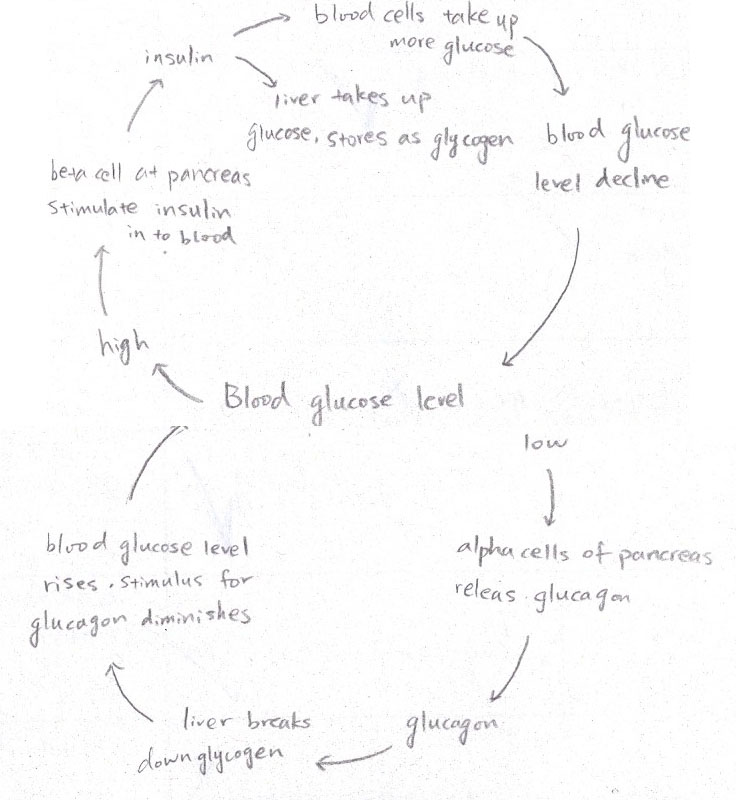 blood cells take up
more glucose
insulin
liver takes up
glucose, stores as glycogen
blood glucose
level decline
beta cell at pancreas
stimulate insulin
in to blood
high
Blood glucose level
low
alpha cells of pancreas
releas glucagon
blood glucose level
rises, stimulus for
glucagon diminishes
glucagon
liver breaks
down glycogen